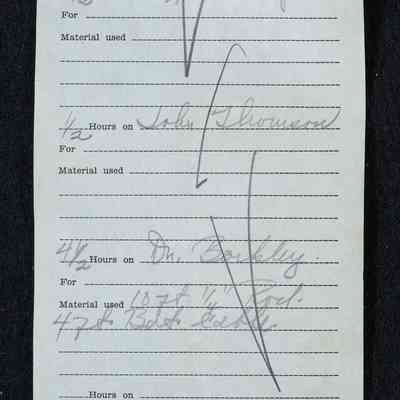 For
Material used
1/2 Hours on John Thomson
For
Material used
4 1/2 Hours on Dr. Barkley.
For
Material used 10 ft 1/2" Rod.
47 ft Bat cable
Hours on